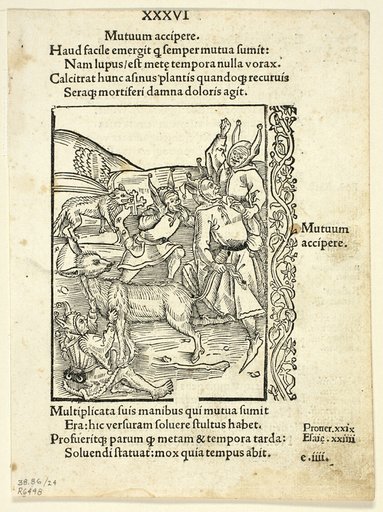 XXXVI
Mutuum accipere.
Haud facile emergit q̃ semper mutua sumit:
Nam lupus/est metę tempora nulla vorax.
Calcitrat hunc asinus plantis quandoqꝫ recuruis
Seraqꝫ mortiferi damna doloris agit.
Mutuum
accipere.
Multiplicata suis manibus qui mutua sumit
Era: hic versuram soluere stultus habet.
Profueritqꝫ parum q̃ metam & tempora tarda:
Soluendi statuat: mox quia tempus abit.
Prouer. xxix
Esaię. xxiiii
e. iiii.
38.86/24
R6498